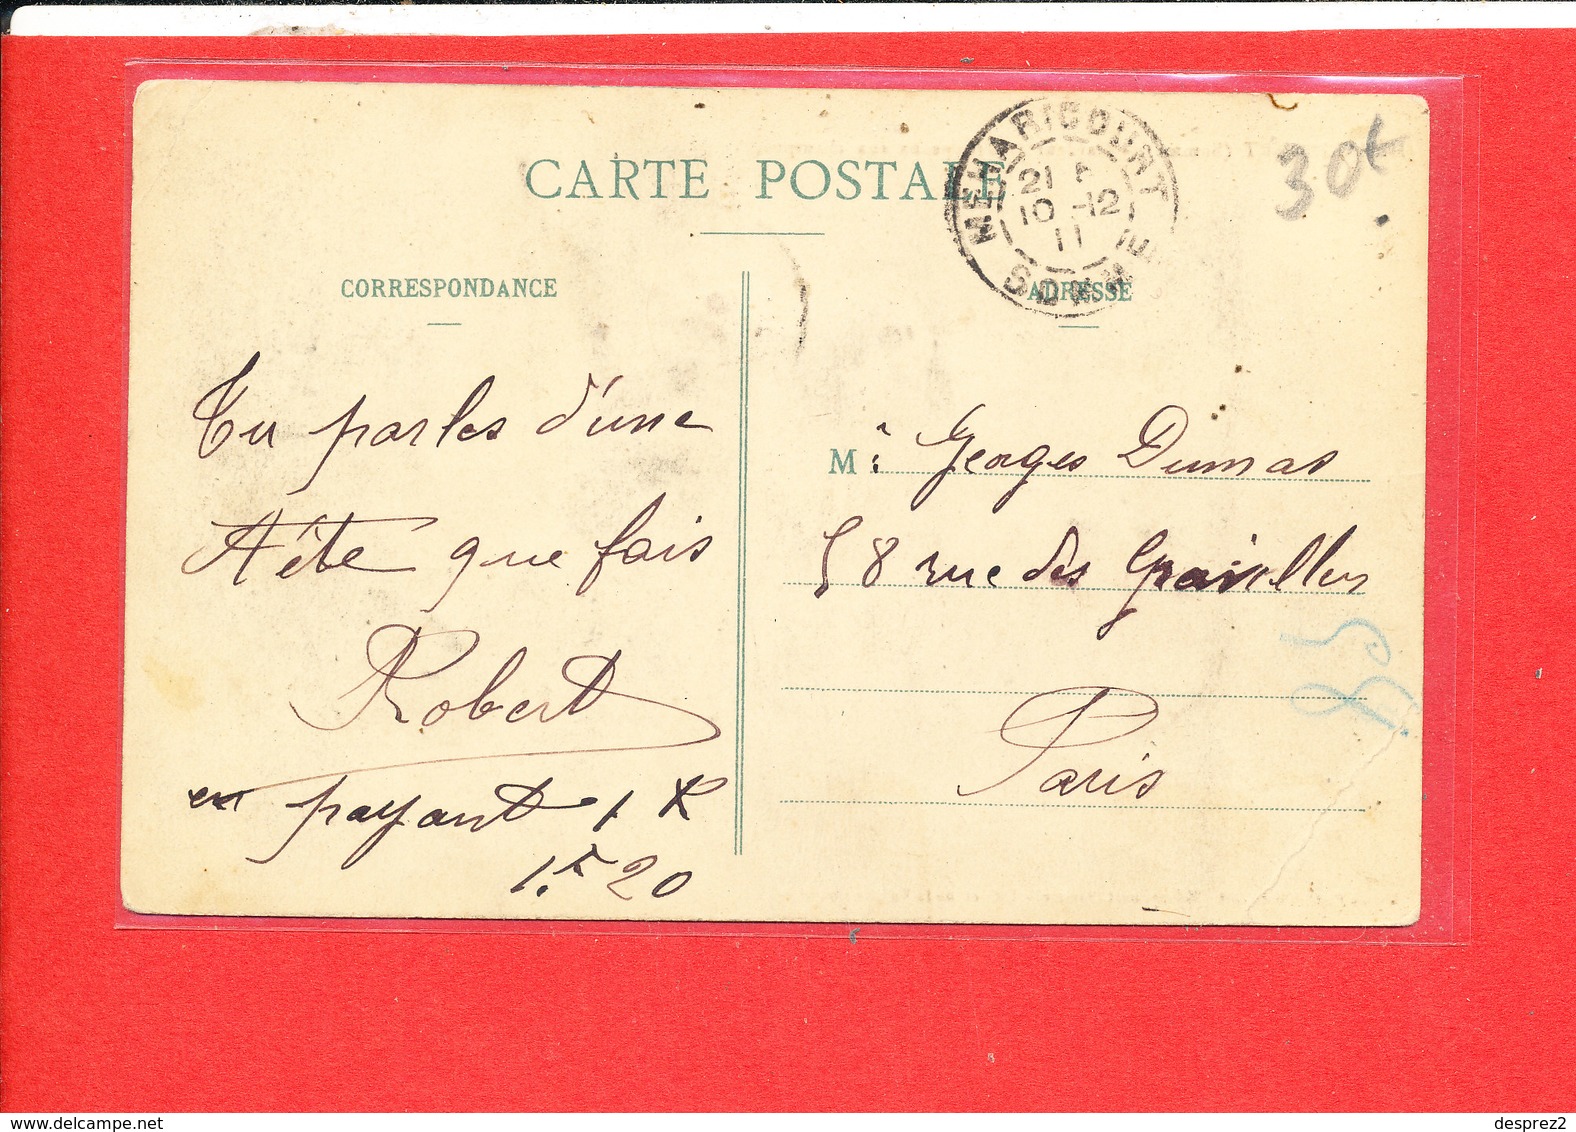 CARTE POSTALE
MEHARICOURT
21
10-12
11
SOMME
30
CORRESPONDANCE
ADRESSE
Tu parles d'une
tête que fais
Robert
en payant 1
1.F 20
M. Georges Dumas
58 rue des Gravilliers
Paris
58
www.delcampe.net
desprez2